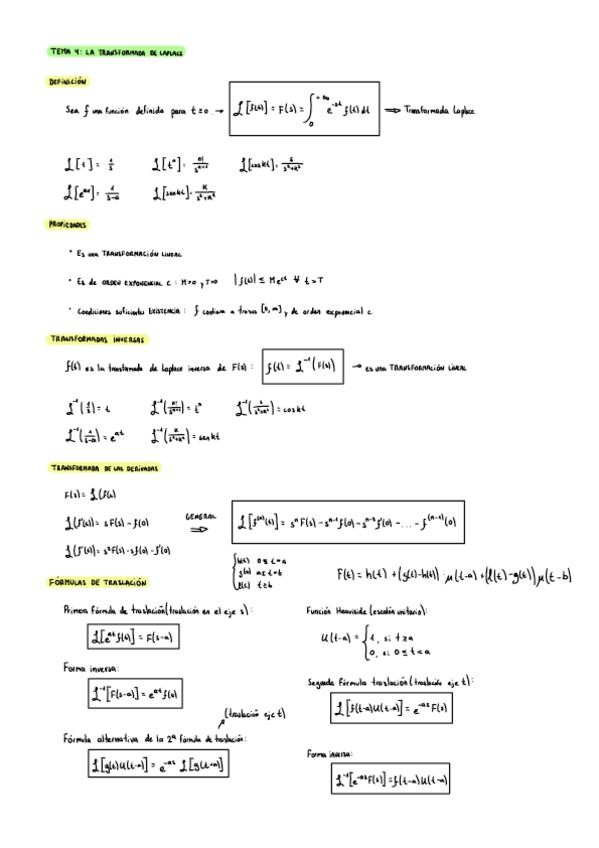 TEMA 4: LA TRANSFORMADA DE LAPLACE
DEFINICIÓN
Sea f una función definida para t≥0. → ℒ[f(t)] = F(s) = ∫₀^{+∞} e^{-st} f(t) dt ⟹ Transformada Laplace
ℒ[1] = 1/s ℒ[tⁿ] = n!/s^{n+1} ℒ[cos kt] = s/(s²+k²)
ℒ[e^{at}] = 1/(s-a) ℒ[sen kt] = k/(s²+k²)
PROPIEDADES
• ES una TRANSFORMACIÓN LINEAL
• ES de ORDEN EXPONENCIAL c : M>0 y T>0 |f(t)| ≤ M e^{ct} ∀ t>T
• Condiciones suficientes EXISTENCIA : f continua a trozos [0, ∞] y de orden exponencial c.
TRANSFORMADAS INVERSAS
f(t) es la transformada de Laplace inversa de F(s) : f(t) = ℒ⁻¹(F(s)) → es una TRANSFORMACIÓN LINEAL
ℒ⁻¹(1/s) = t ℒ⁻¹(n!/s^{n+1}) = tⁿ ℒ⁻¹(s/(s²+k²)) = cos kt
ℒ⁻¹(1/(s-a)) = e^{at} ℒ⁻¹(k/(s²+k²)) = sen kt
TRANSFORMADA DE LAS DERIVADAS
F(s) = ℒ(f(t))
ℒ(f'(t)) = s F(s) - f(0) GENERAL ⟹ ℒ[f^{(n)}(t)] = sⁿ F(s) - s^{n-1} f(0) - s^{n-2} f'(0) - ... - f^{(n-1)}(0)
ℒ(f''(t)) = s² F(s) - s f(0) - f'(0)
{ h(t) 0≤t<a
g(t) a≤t<b F(t) = h(t) + (g(t)-h(t)) · μ(t-a) + (l(t)-g(t)) μ(t-b)
l(t) t≥b
FÓRMULAS DE TRASLACIÓN
Primera fórmula de traslación (traslación en el eje s) :
ℒ[e^{at} f(t)] = F(s-a)
Forma inversa:
ℒ⁻¹[F(s-a)] = e^{at} f(t)
(traslación eje t)
Fórmula alternativa de la 2ª fórmula de traslación:
ℒ[g(t)U(t-a)] = e^{-as} ℒ[g(t+a)]
Función Heaviside (escalón unitario) :
U(t-a) = { 1, si t≥a
0, si 0≤t<a
Segunda fórmula traslación (traslación eje t) :
ℒ[f(t-a)U(t-a)] = e^{-as} F(s)
Forma inversa:
ℒ⁻¹[e^{-as} F(s)] = f(t-a)U(t-a)